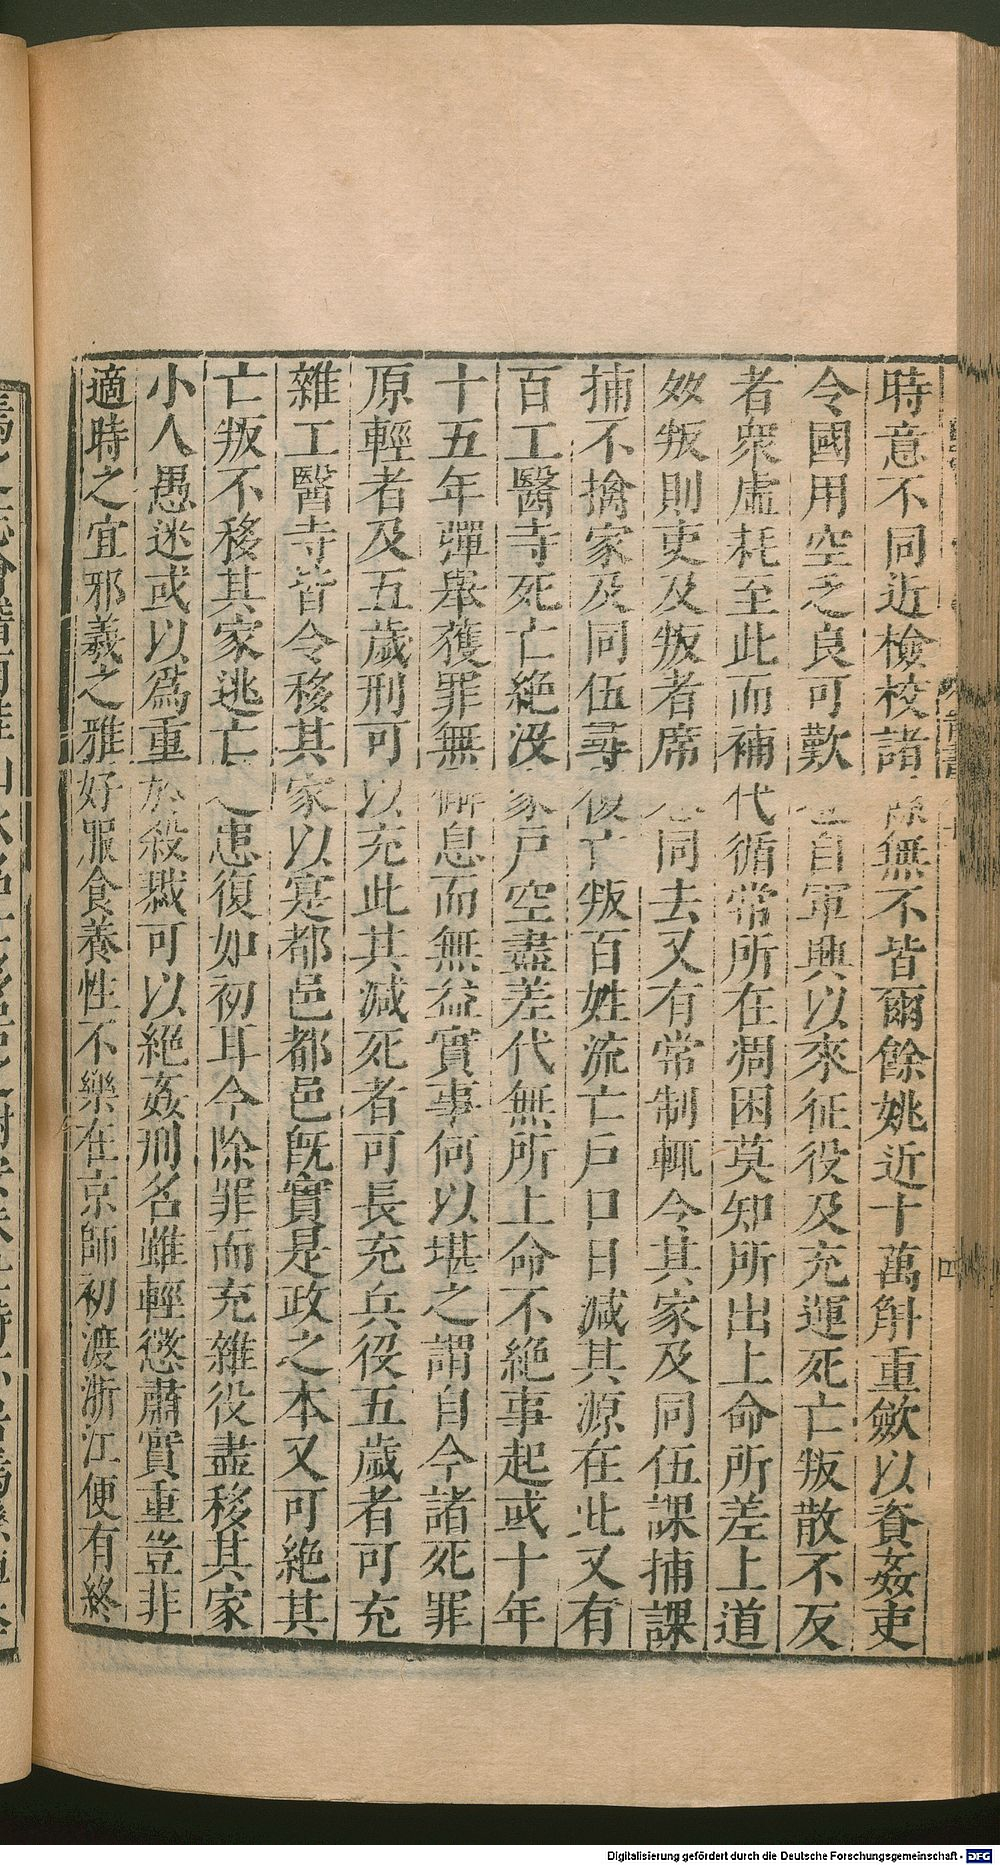 時意不同近檢校諸縣無不皆爾餘姚近十萬斛重歛以資姦吏
令國用空乏良可歎也自軍興以來征役及充運死亡叛散不反
者衆虛耗至此而補代循常所在凋困莫知所出上命所差上道
效叛則吏及叛者席卷同去又有常制輒令其家及同伍課捕課
捕不擒家及同伍尋復亡叛百姓流亡戶口日減其源在此又有
百工醫寺死亡絶沒家戶空盡差代無所上命不絶事起或十年
十五年彈舉獲罪無懈息而無益實事何以堪之謂自今諸死罪
原輕者及五歲刑可以充此其減死者可長充兵役五歲者可充
雜工醫寺皆令移其家以寔都邑都邑旣實是政之本又可絶其
亡叛不移其家逃亡之患復如初耳今除罪而充雜役盡移其家
小人愚迷或以爲重於殺戮可以絶姦刑名雖輕懲肅實重豈非
適時之宜邪羲之雅好服食養性不樂在京師初渡浙江便有終
四
Digitalisierung gefördert durch die Deutsche Forschungsgemeinschaft - DFG